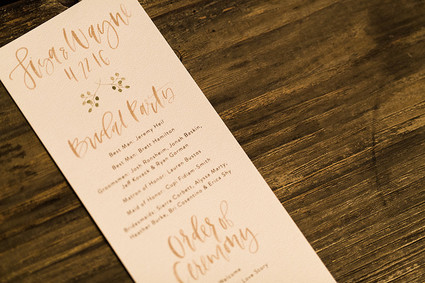 & Wayne
Bridal Party
Best Man: Jeremy Heil
Best Man: Brett Hamilton
Groomsmen: Josh Ronsheim, Jonah Batkin,
Jeff Kovack & Ryan Gorman
Matron of Honor: Lauren Batkin
Maid of Honor: Smith
Bridesmaids: Sierra Corbett, Alyssa Marty,
Heather Burke, Bri Cosentino & Erica Sky
Order of
Ceremony
Welcome
Love Story